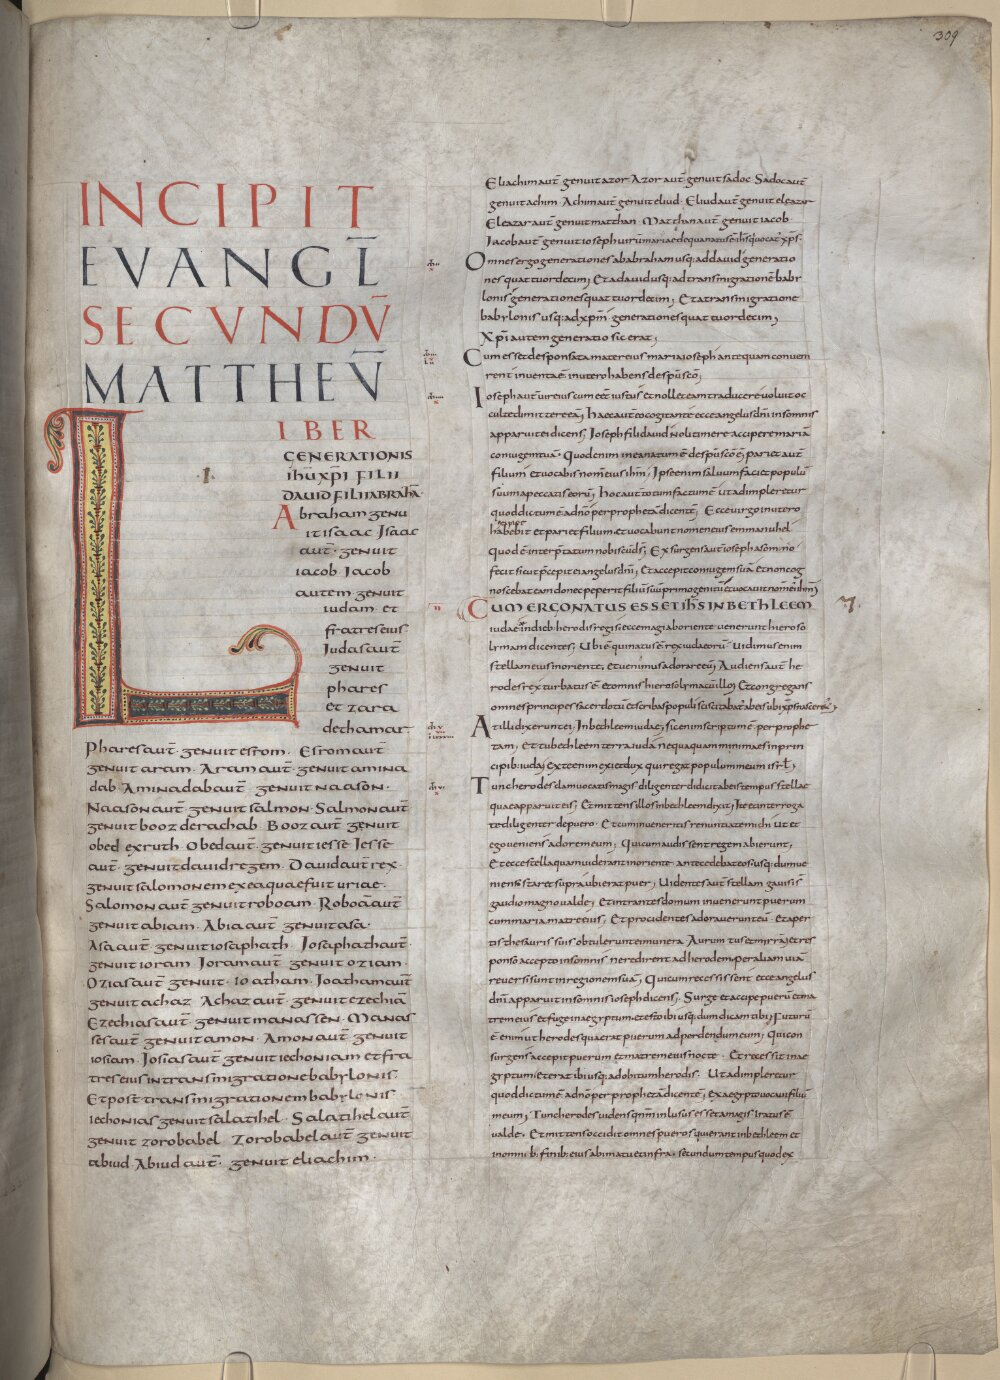 309
INCIPIT
EVANGL̅
SECVNDV̅
MATTHEV̅
LIBER
GENERATIONIS
IHU̅ XPI̅ FILII
DAVID FILII ABRAHA̅
Abraham genu
it isaac Isaac
aut̅ genuit
iacob Iacob
autem genuit
iudam et
fratres eius
Iudas aut̅
genuit
phares
et zara
de thamar
Phares aut̅ genuit esrom. Esrom aut̅
genuit aram. Aram aut̅ genuit amina
dab Aminadab aut̅ genuit naason.
Naason aut̅ genuit salmon. Salmon aut̅
genuit booz de rachab Booz aut̅ genuit
obed ex ruth Obed aut̅ genuit iesse Iesse
aut̅ genuit dauid regem Dauid aut̅ rex
genuit salomonem ex ea quae fuit uriae.
Salomon aut̅ genuit roboam. Roboa̅ aut̅
genuit abiam. Abia aut̅ genuit asa.
Asa aut̅ genuit iosaphath Iosaphath aut̅
genuit ioram Ioram aut̅ genuit oziam.
Ozias aut̅ genuit ioatham Ioatham aut̅
genuit achaz Achaz aut̅ genuit ezechia̅
Ezechias aut̅ genuit manassen. Manas
ses aut̅ genuit amon. Amon aut̅ genuit
iosiam. Iosias aut̅ genuit iechoniam et fra
tres eius in transmigratione babylonis.
Et post transmigrationem babylonis
iechonias genuit salatihel. Salatihel aut̅
genuit zorobabel Zorobabel aut̅ genuit
abiud Abiud aut̅ genuit eliachim.
Eliachim aut̅ genuit azor Azor aut̅ genuit sadoc Sadoc aut̅
genuit achim. Achim aut̅ genuit eliud. Eliud aut̅ genuit eleazar
Eleazar aut̅ genuit matthan. Matthan aut̅ genuit iacob
Iacob aut̅ genuit ioseph uirum mariae de qua natus e̅ ihs̅ qui uocat' xps̅.
Omnes ergo generationes ab abraham usq; ad dauid generatio
nes quattuordecim; Et a dauid usq; ad transmigratione̅ baby
lonis generationes quattuordecim; Et a transmigratione
babylonis usq; ad xpm̅ generationes quattuordecim;
Xpi̅ autem generatio sic erat;
Cum esset desponsata mater eius maria ioseph antequam conuen
rent inuenta e̅ in utero habens de sp̅u sc̅o;
Ioseph aut̅ uir eius cum e̅e̅t iustus et nollet eam traducere uoluit oc
culte dimittere ea̅; Haec aut̅ eo cogitante ecce angelus dn̅i in somnis
apparuit ei dicens; Ioseph fili dauid noli timere accipere maria̅
coniugem tua̅. Quod enim in ea natum e̅ de sp̅u sc̅o e̅; pariet aut̅
filium et uocabis nomen eius ihm̅; Ipse enim saluum faciet populu̅
suum a peccatis eoru̅; Hoc aut̅ totum factum e̅ ut adimpleretur
quod dictum e̅ a dn̅o per propheta̅ dicente̅; Ecce uirgo in utero
habebit et pariet filium et uocabunt nomen eius emmanuhel
quod e̅ interp̅tatum nobiscum d̅s; Exsurgens aut̅ ioseph a somno
fecit sicut p̅cepit ei angelus dn̅i; Et accepit coniugem sua̅ et non cog
noscebat eam donec peperit filiu̅ suu̅ primogenitu̅ et uocauit nom̅ ei' ihm̅;
CUM ERGO NATUS ESSET IHS̅ IN BETHLEEM
iudae in dieb; herodis regis ecce magi ab oriente uenerunt hieroso
lymam dicentes; Ubi e̅ qui natus e̅ rex iudaeoru̅. Uidimus enim
stellam eius in oriente; et uenimus adorare eu̅; Audiens aut̅ he
rodes rex turbatus e̅ et omnis hierosolyma cu̅ illo; Et congregans
omnes principes sacerdotu̅ et scribas populi
At illi dixerunt ei; In bethleem iudae; sic enim scriptum e̅ per prophe
tam; Et tu bethleem terra iuda nequaquam minima es in prin
cipib; iuda; ex te enim exiet dux qui regat populum meum isrl̅;
Tunc herodes clam uocatis magis diligenter didicit ab eis tempus stellae
quae apparuit eis; Et mittens illos in bethleem dixit; Ite et interroga
te diligenter de puero. Et cum inueneritis renuntiate mihi ut et
ego ueniens adorem eum; Qui cum audissent regem abierunt;
Et ecce stella quam uiderant in oriente antecedebat eos usq; dum ue
niens staret supra ubi erat puer; Uidentes aut̅ stellam gauisi s̅
gaudio magno ualde; Et intrantes domum inuenerunt puerum
cum maria matre eius; Et procidentes adorauerunt eu̅. Et aper
tis thesauris suis obtulerunt ei munera Aurum tus et myrra̅; et res
ponso accepto in somnis ne redirent ad herodem per aliam uia̅
reuersi sunt in regionem sua̅; Qui cum recessissent ecce angelus
dn̅i apparuit in somnis ioseph dicens; Surge et accipe pueru̅ et ma
trem eius et fuge in aegyptum et esto ibi usq; dum dicam tibi; Futuru̅
e̅ enim ut herodes quaerat puerum ad perdendum eum; Qui con
surgens accepit puerum et matrem eius nocte. Et recessit in ae
gyptum et erat ibi usq; ad obitum herodis. Ut adimpleretur
quod dictum e̅ a dn̅o per propheta̅ dicente̅; ex aegypto uocaui filiu̅
meum; Tunc herodes uidens qnm̅ inlusus esset a magis iratus e̅
ualde. Et mittens occidit omnes pueros qui erant in bethleem et
in omnib; finib; eius a bimatu et infra; secundum tempus quod ex